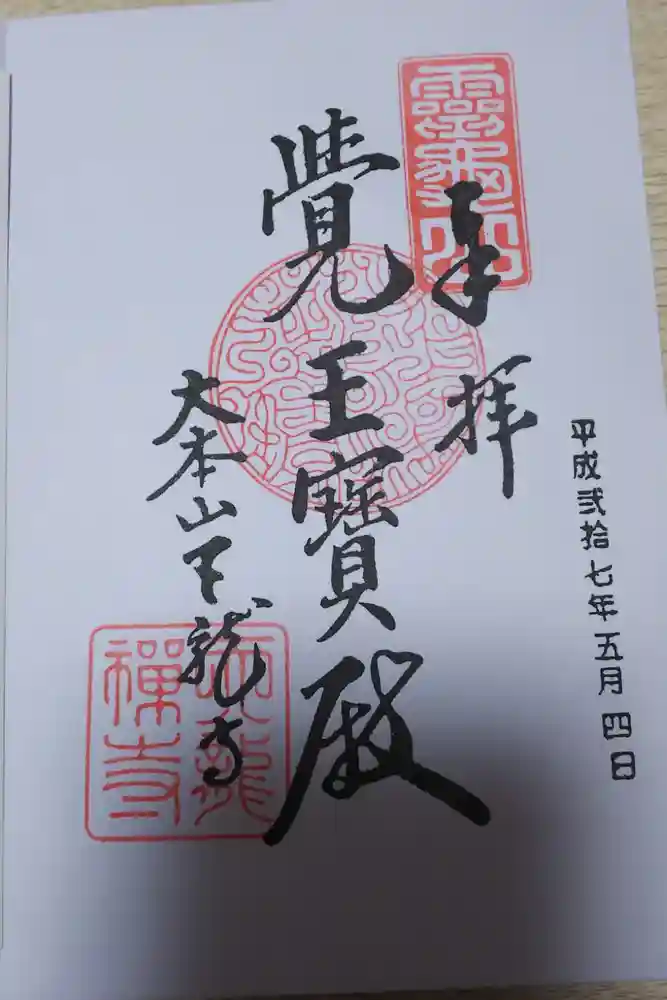 平成弐拾七年五月四日
奉拝
靈龜山
覺王寶殿
大本山天龍寺
天龍禅寺